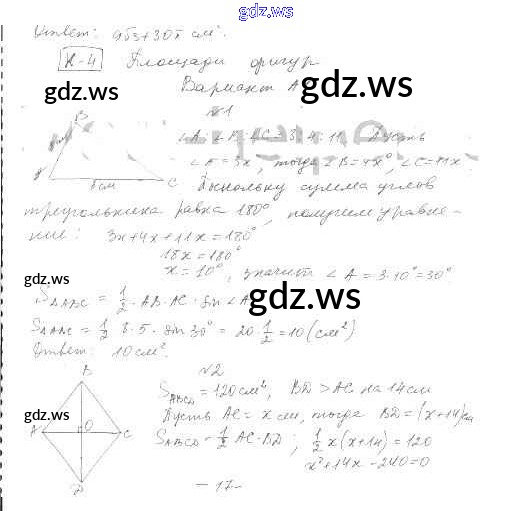 gdz.ws
Ответ: 9√3+30π см².
К-4 Площади фигур
gdz.ws gdz.ws
Вариант А
№1
∠A : ∠B : ∠C = 3 : 4 : 11. Пусть
∠A = 3x, тогда ∠B = 4x, ∠C = 11x.
B
A C
5 см
Поскольку сумма углов
треугольника равна 180°, получим уравне-
ние: 3x+4x+11x=180°
18x=180°
x=10°, значит ∠A = 3·10°=30°.
gdz.ws gdz.ws
S△ABC = 1/2 · AB · AC · sin ∠A
S△ABC = 1/2 8·5 · sin 30° = 20·1/2 = 10 (см²)
Ответ: 10 см².
№2
B
A O C
D
gdz.ws
SABCD = 120 см², BD > AC на 14 см
Пусть AC = x см, тогда BD = (x+14) см
SABCD = 1/2 AC·BD ; 1/2 x(x+14) = 120
x²+14x-240=0
- 17-
gdz.ws